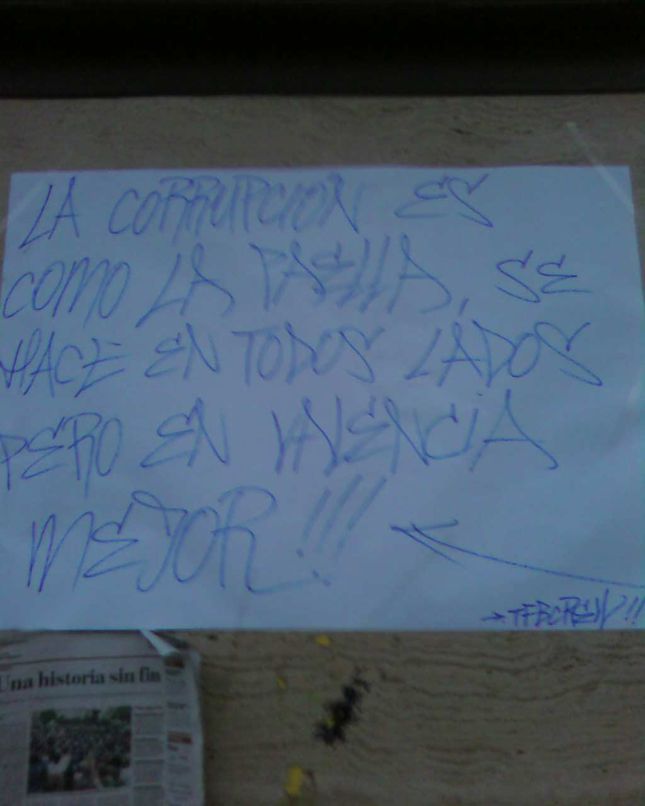 LA CORRUPCION ES
COMO LA PAELLA, SE
HACE EN TODOS LADOS
PERO EN VALENCIA
MEJOR!!!
→TFBCREW!!
Una historia sin fin